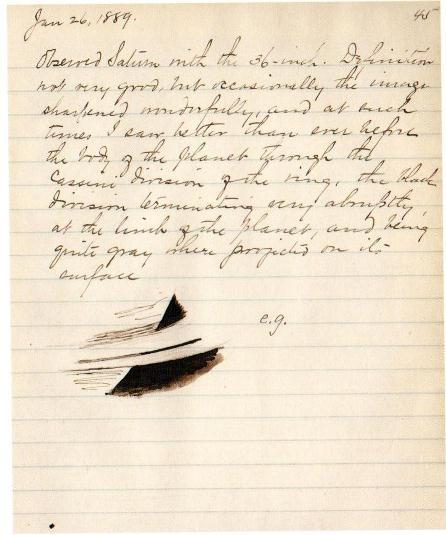 Jan 26, 1889.
45
Observed Saturn with the 36-inch. Definition
not very good, but occasionally the image
sharpened wonderfully, and at such
times I saw better than ever before
the body of the planet through the
Cassini division of the ring, the black
division terminating very abruptly,
at the limb of the planet, and being
quite gray where projected on its
surface
e.g.